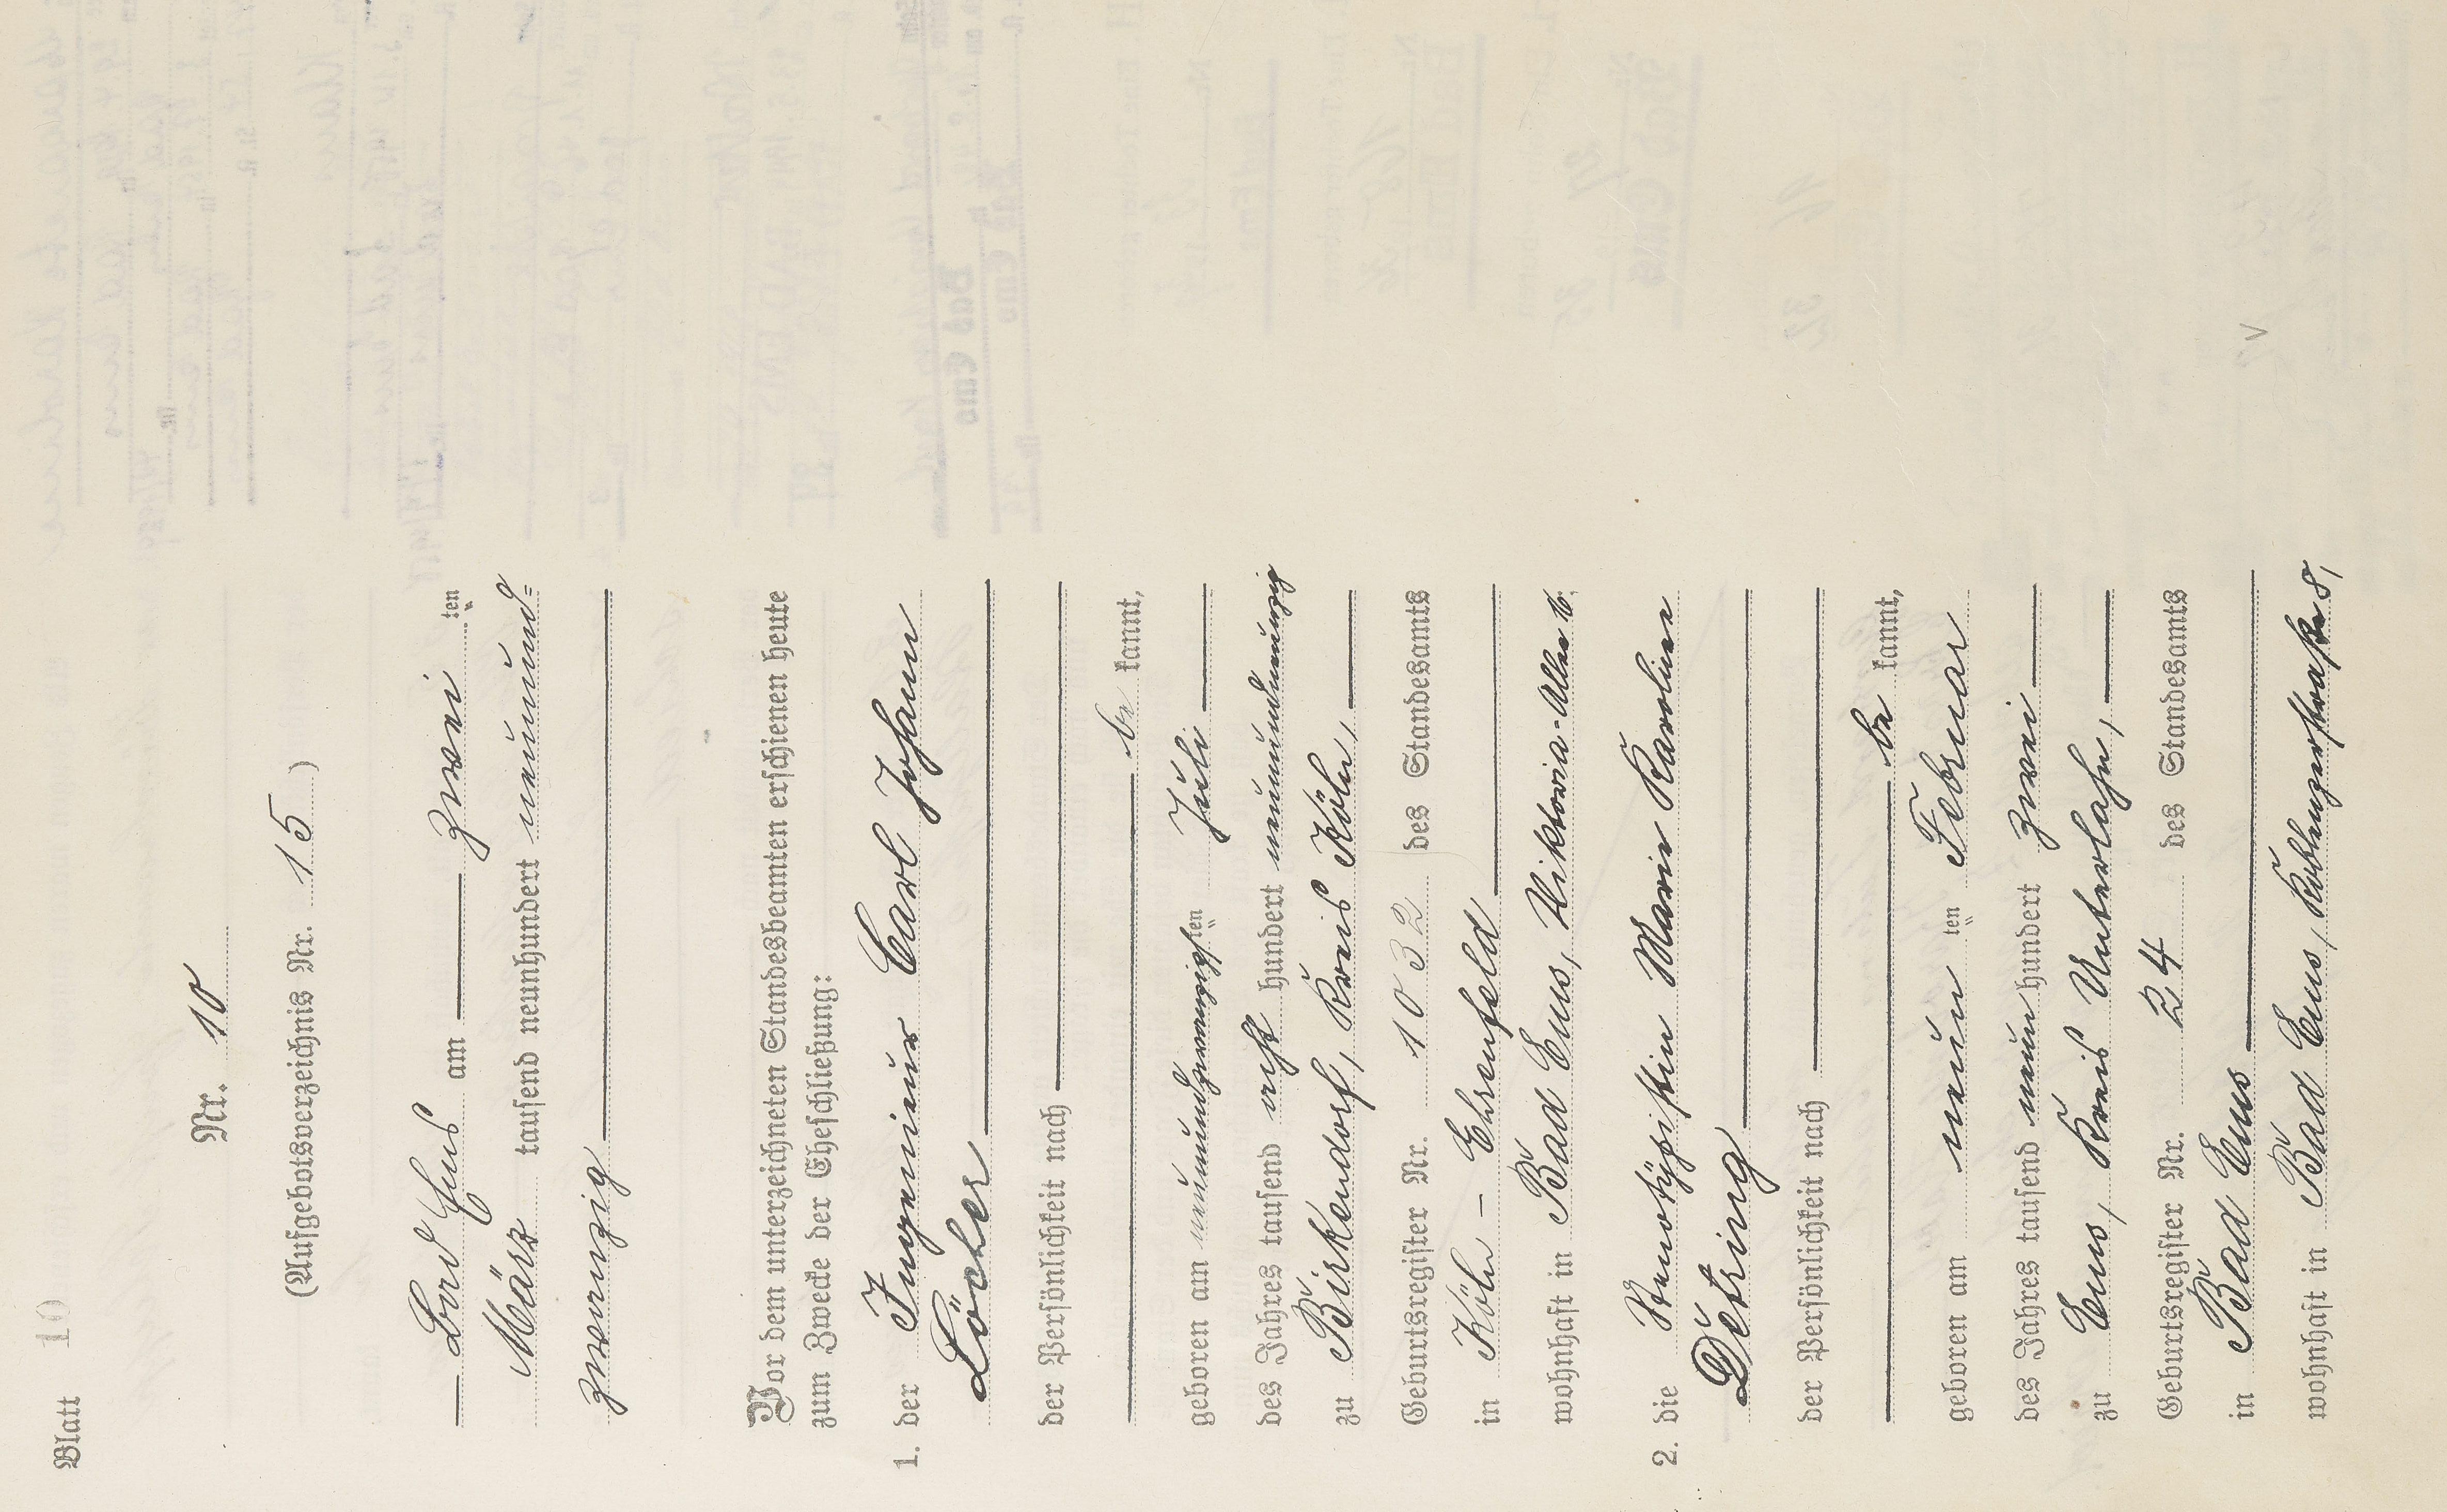 Blatt 10
Nr. 10
(Aufgebotsverzeichnis Nr. 15)
— Bad Ems am — zwei ten
März tausend neunhundert neunund=
zwanzig
Vor dem unterzeichneten Standesbeamten erschienen heute
zum Zwecke der Eheschließung:
1. der Ingenieur Carl Johann
Löcher
der Persönlichkeit nach
be kannt,
geboren am neunundzwanzigsten Juli
des Jahres tausend acht hundert neunundneunzig
zu Birkendorf, Kreis Köln,
Geburtsregister Nr. 1032 des Standesamts
in Köln - Ehrenfeld
wohnhaft in Bad Ems, Viktoria-Allee 16.
2. die Stenotypistin Marie Karoline
Detring
der Persönlichkeit nach
be kannt,
geboren am neun ten Februar
des Jahres tausend neun hundert zwei
zu Ems, Kreis Unterlahn,
Geburtsregister Nr. 24 des Standesamts
in Bad Ems
wohnhaft in Bad Ems, Koblenzerstraße 8,